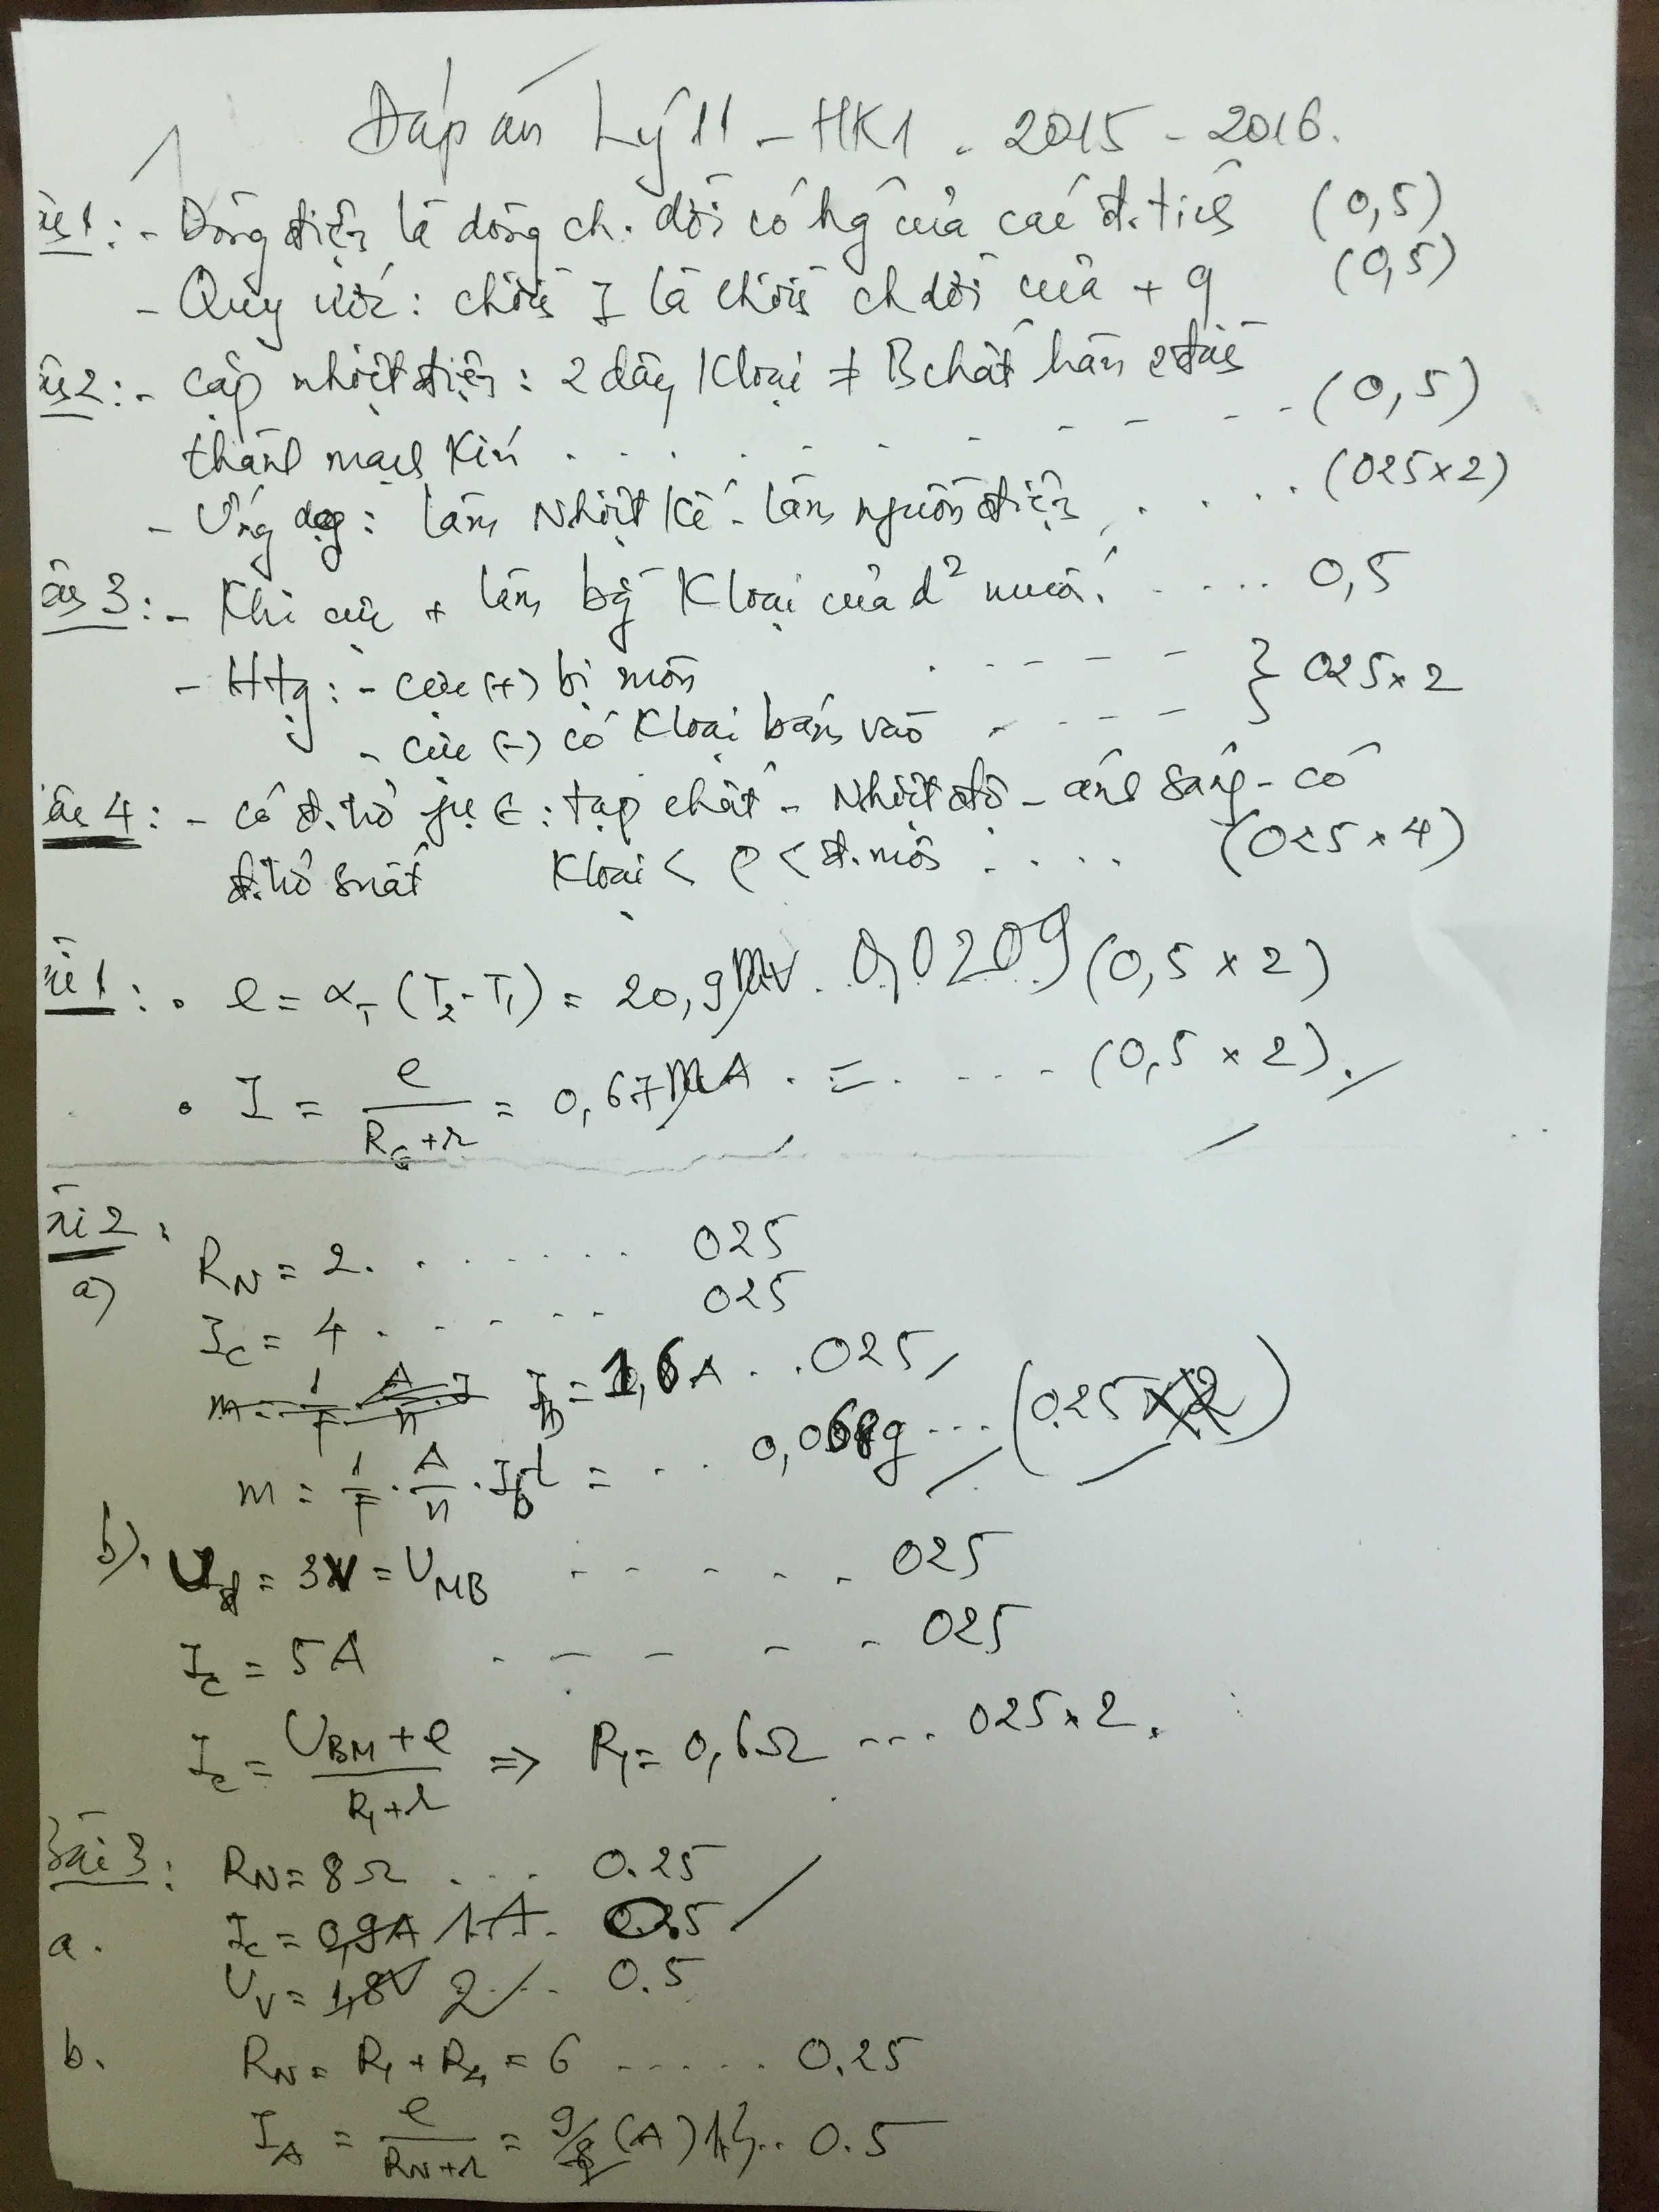 Đáp án Lý 11 - HK1 - 2015 - 2016.
1: - Dòng điện là dòng ch. dời có hg của các đ.tích (0,5)
- Quy ước: chiều I là chiều ch dời của + q (0,5)
2: - Cặp nhiệt điện: 2 dây Kloại ≠ Bchất hàn 2 đầu
thành mạch Kín . . . . . . . - - - - - (0,5)
- Ứng dụng: làm Nhiệt Kế - làm nguồn điện . . . . (025 x 2)
3: - Khi cực + làm bg Kloại của d² muối . . . . . 0,5
- Htg: - cực (+) bị mòn . - - - -
- cực (-) có Kloại bám vào . - - - } 025 x 2
4: - Có đ.trở ∈: tạp chất - Nhiệt độ - ánh sáng - có
đ.trở suất Kloại < ρ < đ.môi . . . . (025 x 4)
1: • e = αT (T2 - T1) = 20,9mV . 0,0209 (0,5 x 2)
• I = e / (RG + r) = 0,67mA . = . - - - - (0,5 x 2).
2:
a) RN = 2 . . . . . . . 025
Ic = 4 . - - - - - 025
Ib = 1,6A . . . 025
m = 1/F . A/n . Ib t = - . . 0,068g - - - (0.25 x 2)
b). Uđ = 3V = UMB - - - - - - 025
Ic = 5A - - - - - 025
Ic = (UBM + e) / (R1 + r) => R1 = 0,6Ω - - - . 025 x 2.
Bài 3: RN = 8Ω . . . . 0.25
a. Ic = 0,9A 1A . 0.25
UV = 1,8V 2 . . . 0.5
b. RN = R1 + R4 = 6 - - - . . . 0.25
IA = e / (RN + r) = (A) . . 0.5